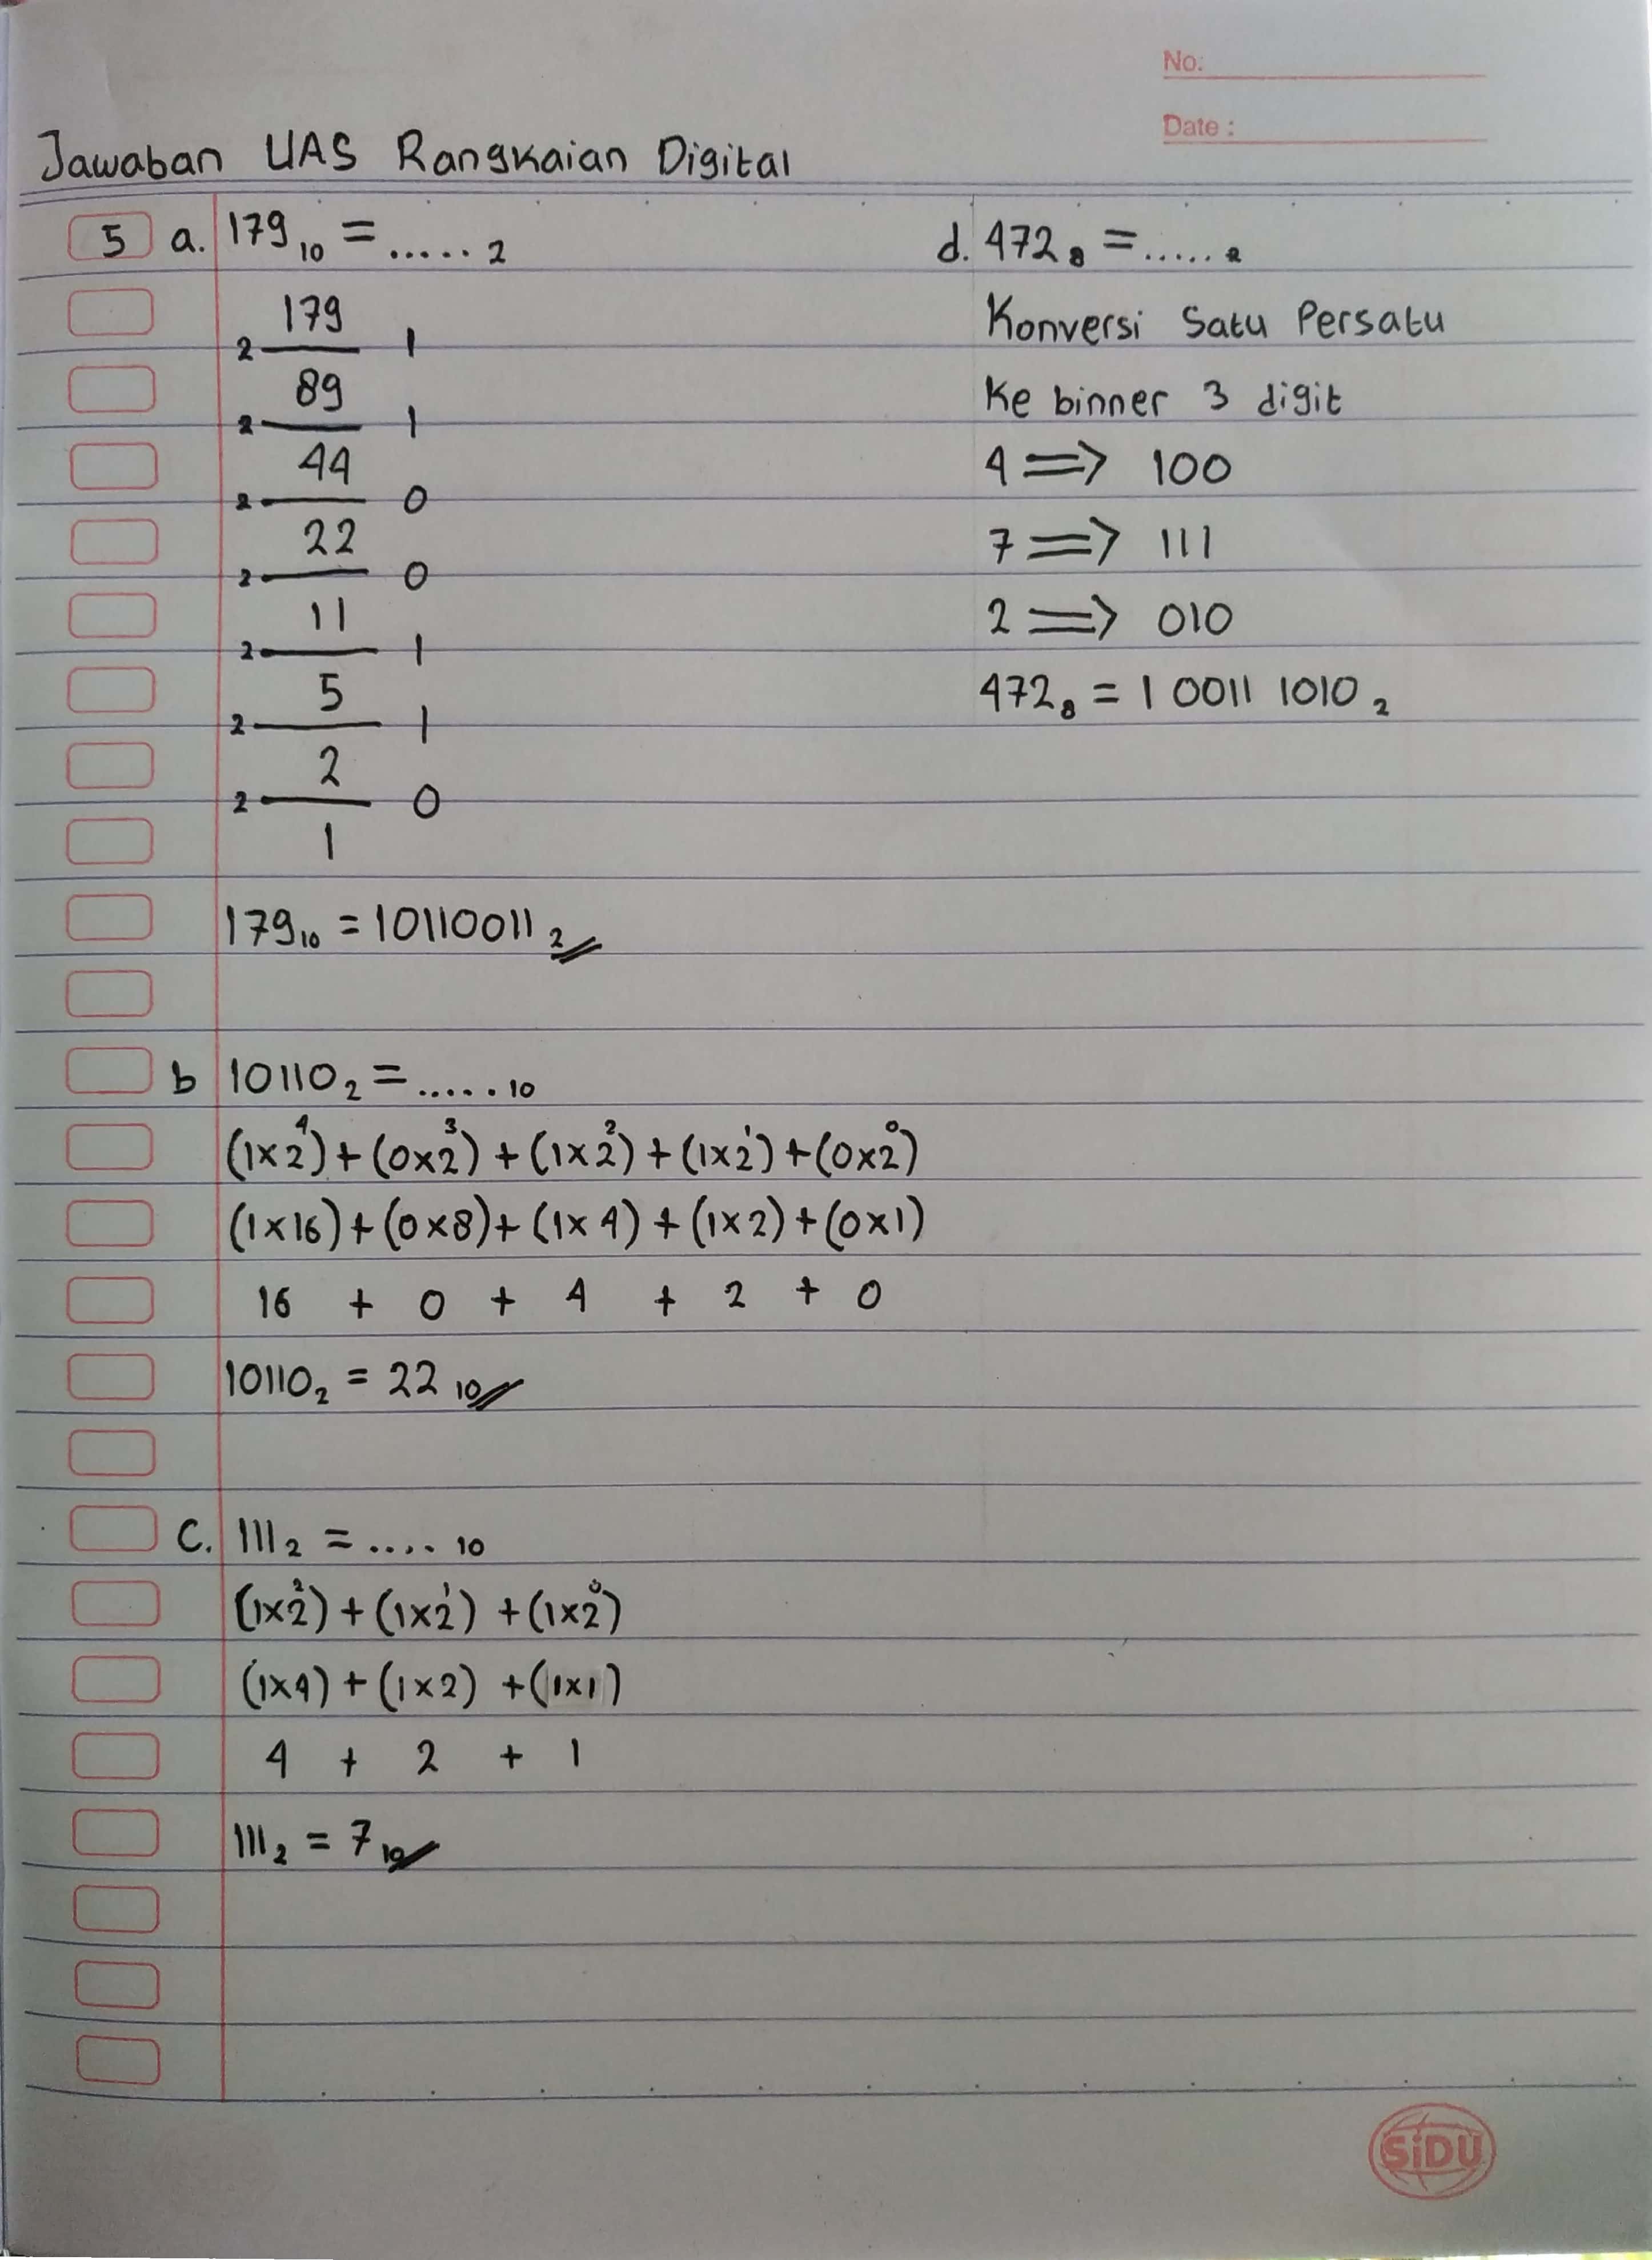 No:
Date :
Jawaban UAS Rangkaian Digital
5 a. 179₁₀ = ......₂
2 179 1
2 89 1
2 44 0
2 22 0
2 11 1
2 5 1
2 2 0
1
179₁₀ = 10110011₂
b 10110₂ = ......₁₀
(1x2⁴)+(0x2³)+(1x2²)+(1x2¹)+(0x2⁰)
(1x16)+(0x8)+(1x4)+(1x2)+(0x1)
16 + 0 + 4 + 2 + 0
10110₂ = 22₁₀
C. 111₂ = ....₁₀
(1x2²)+(1x2¹)+(1x2⁰)
(1x4)+(1x2)+(1x1)
4 + 2 + 1
111₂ = 7₁₀
d. 472₈ = ......₂
Konversi Satu Persatu
Ke binner 3 digit
4 => 100
7 => 111
2 => 010
472₈ = 1 0011 1010₂
SiDU